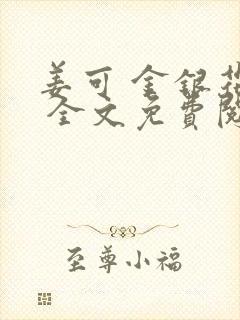 姜可 金银花
全文免費閱
至尊小福